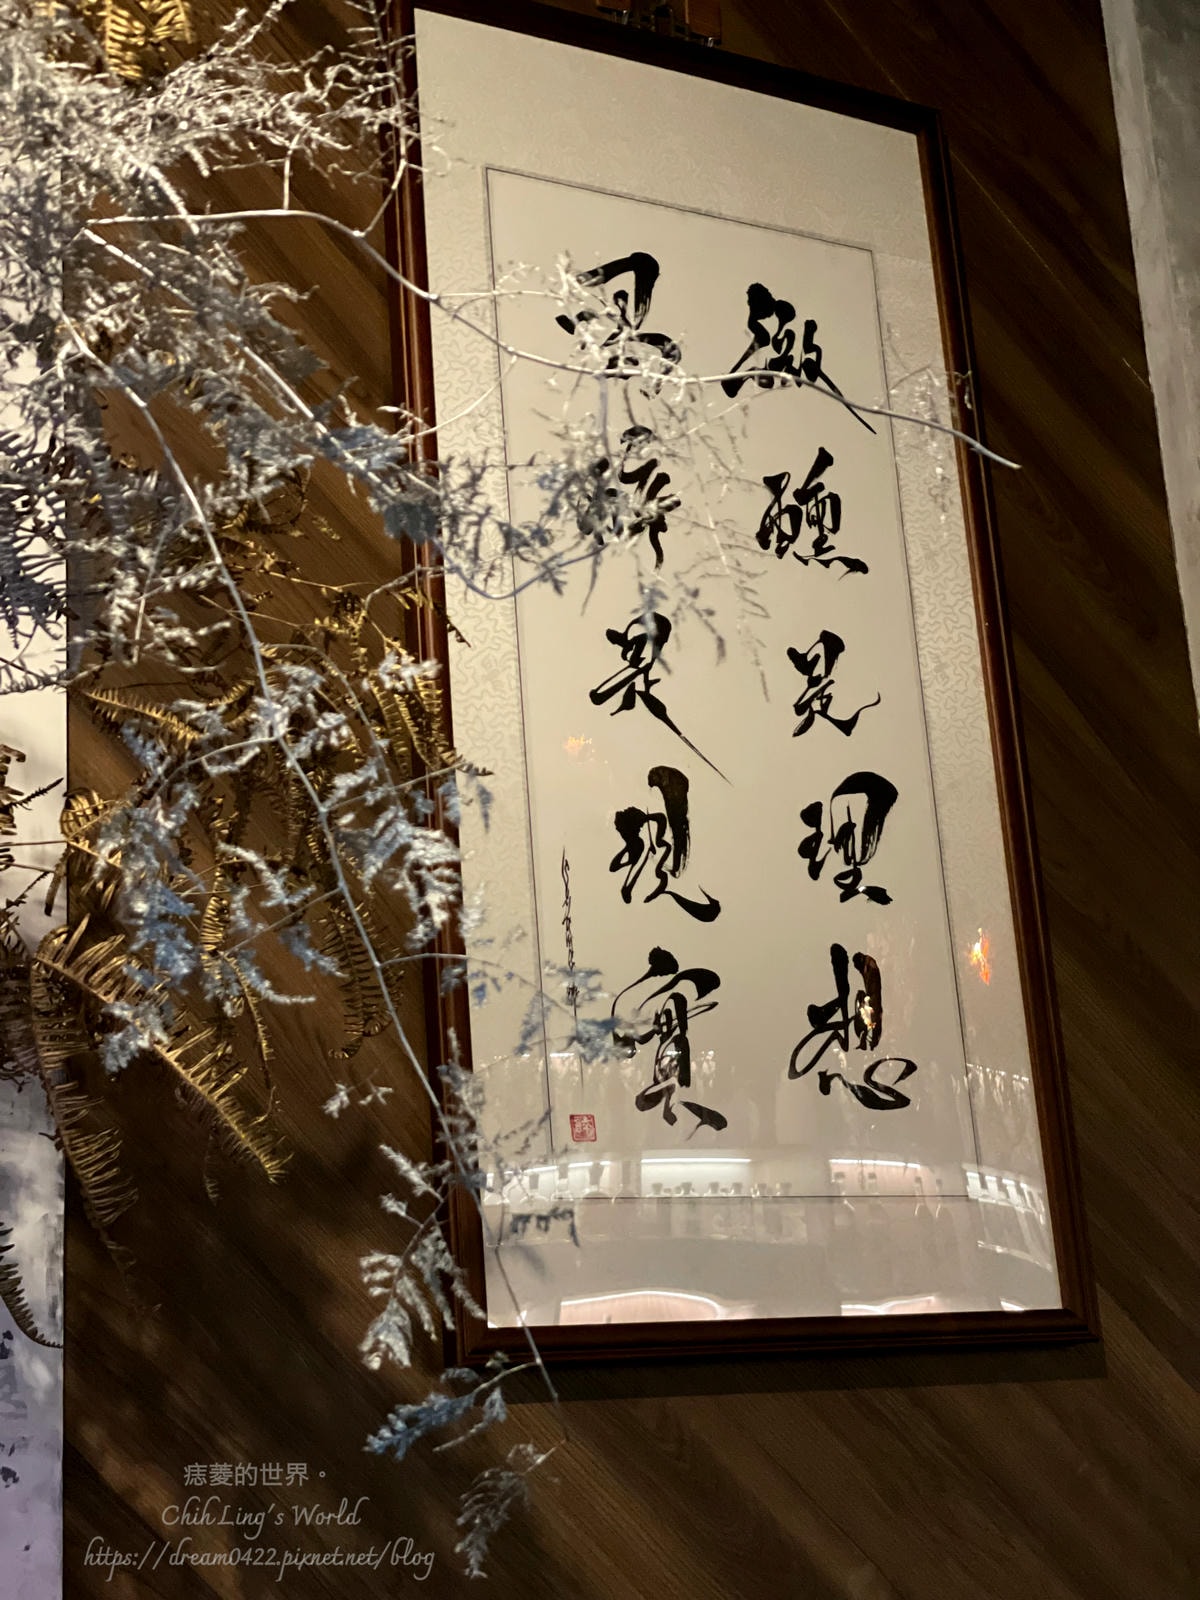 微醺是理想
醉是現實
痣菱的世界。
ChihLing's World
https://dream0422.pixnet.net/blog